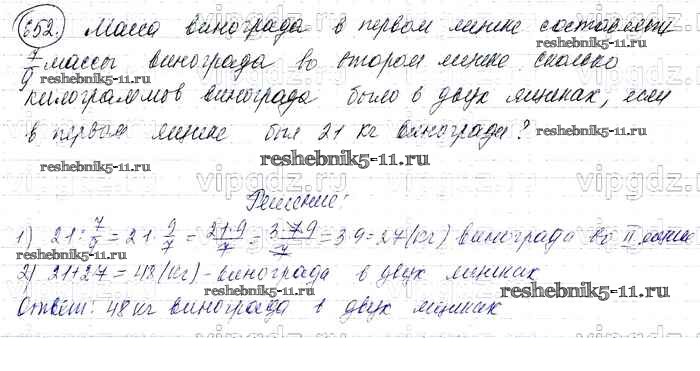 652. Масса винограда в первом ящике составляет
7/9 массы винограда во втором ящике сколько
килограммов винограда было в двух ящиках, если
в первом ящике был 21 кг винограда?
Решение:
1) 21 : 7/9 = 21 · 9/7 = 21·9/7 = 3·7·9/7 = 3·9 = 27 (кг) винограда во II ящике
2) 21+27 = 48 (кг) - винограда в двух ящиках
Ответ: 48 кг винограда в двух ящиках
reshebnik5-11.ru
reshebnik5-11.ru
reshebnik5-11.ru
reshebnik5-11.ru
reshebnik5-11.ru
reshebnik5-11.ru
reshebnik5-11.ru
vipgdz.ru